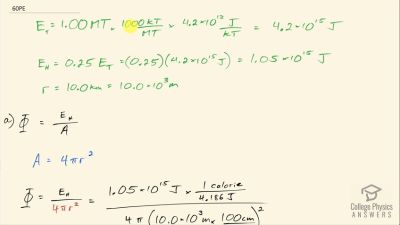 60PE
E_T = 1.00 MT × 1000 kT / MT × 4.2 × 10^12 J / kT = 4.2 × 10^15 J
E_H = 0.25 E_T = (0.25)(4.2 × 10^15 J) = 1.05 × 10^15 J
r = 10.0 km = 10.0 × 10^3 m
a) Φ = E_H / A
A = 4πr^2
Φ = E_H / 4πr^2 = 1.05 × 10^15 J × 1 calorie / 4.186 J / 4π(10.0 × 10^3 m × 100cm)^2
College Physics
ANSWERS